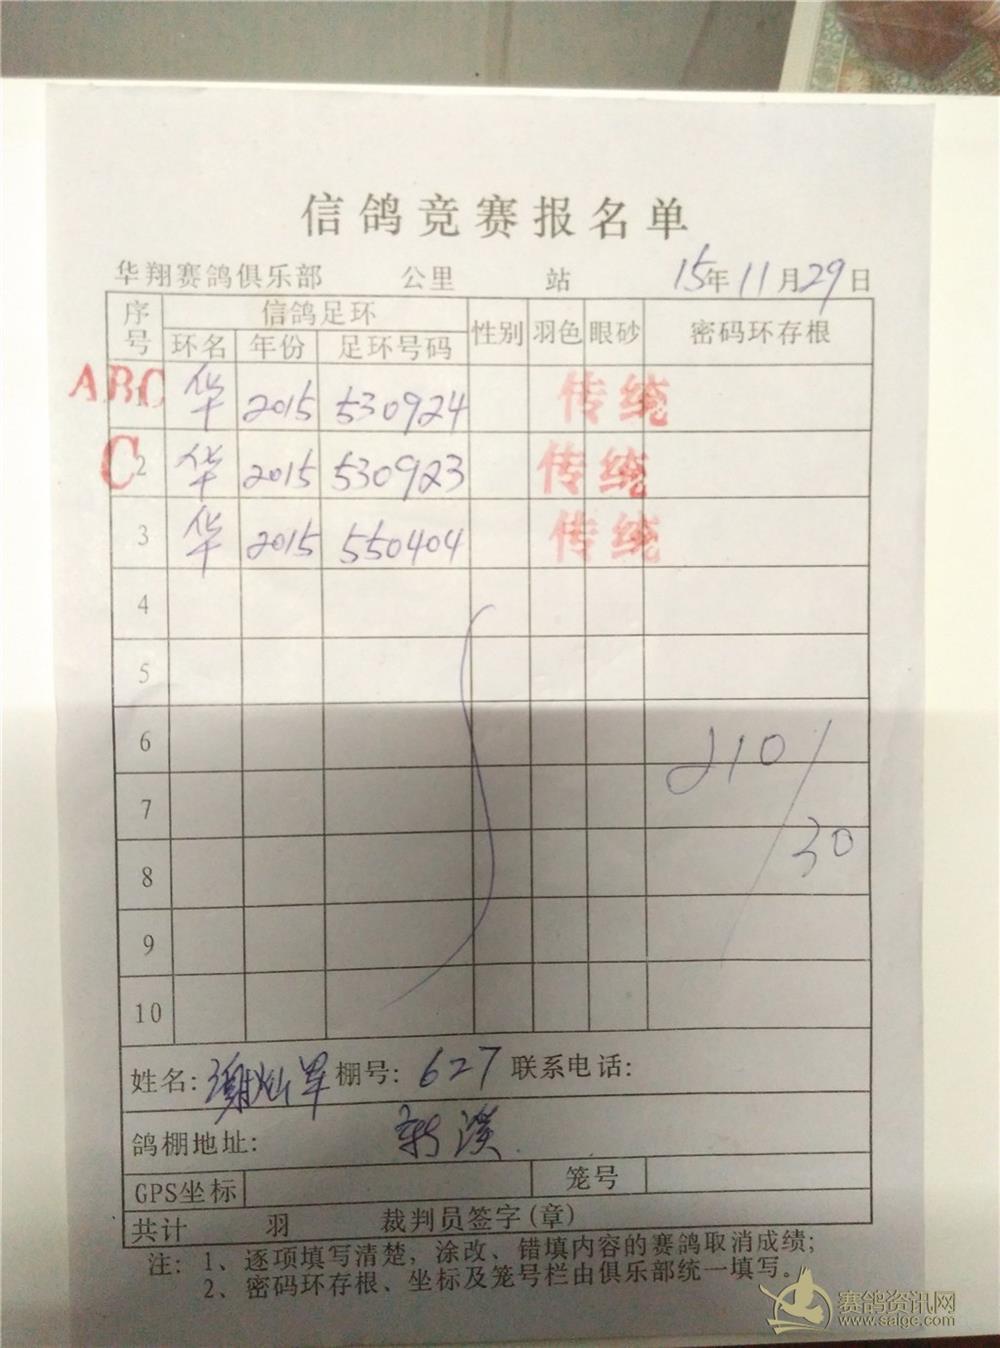 信鸽竞赛报名单
华翔赛鸽俱乐部 公里 站 15年11月29日
序号 信鸽足环 性别 羽色 眼砂 密码环存根
环名 年份 足环号码
ABC 1 华 2015 530924 传统
C 2 华 2015 530923 传统
3 华 2015 550404 传统
4
5
6
210/30
7
8
9
10
姓名:谢灿军 棚号:627 联系电话:
鸽棚地址: 新溪
GPS坐标 笼号
共计 羽 裁判员签字(章)
注: 1、逐项填写清楚，涂改、错填内容的赛鸽取消成绩;
2、密码环存根、坐标及笼号栏由俱乐部统一填写。
赛鸽资讯网
www.saige.com